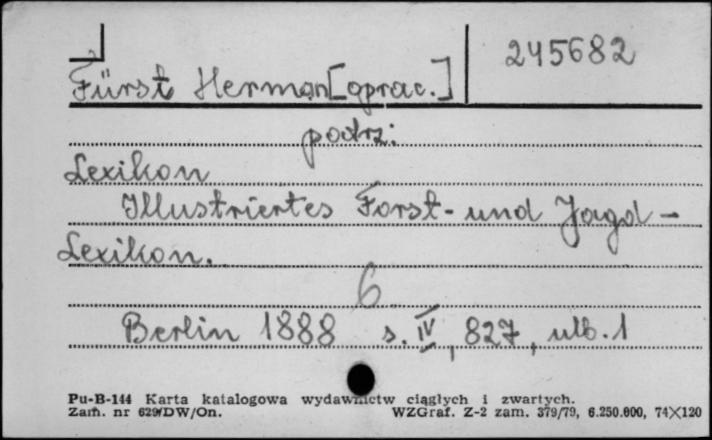 245682
Fürst Herman [oprac.]
podrz:
Lexikon
Illustriertes Forst- und Jagd-
Lexikon.
6
Berlin 1888 s. IV, 827, ulb. 1
Pu-B-144 Karta katalogowa wydawnictw ciągłych i zwartych.
Zam. nr 629/DW/On. WZGraf. Z-2 zam. 379/79, 6.250.000, 74×120